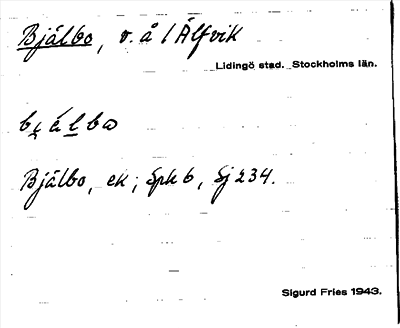 Bjälbo, v. å l Älfvik
Lidingö stad. Stockholms län.
Bjälbo, ek; Spk 6, Sj 234.
Sigurd Fries 1943.